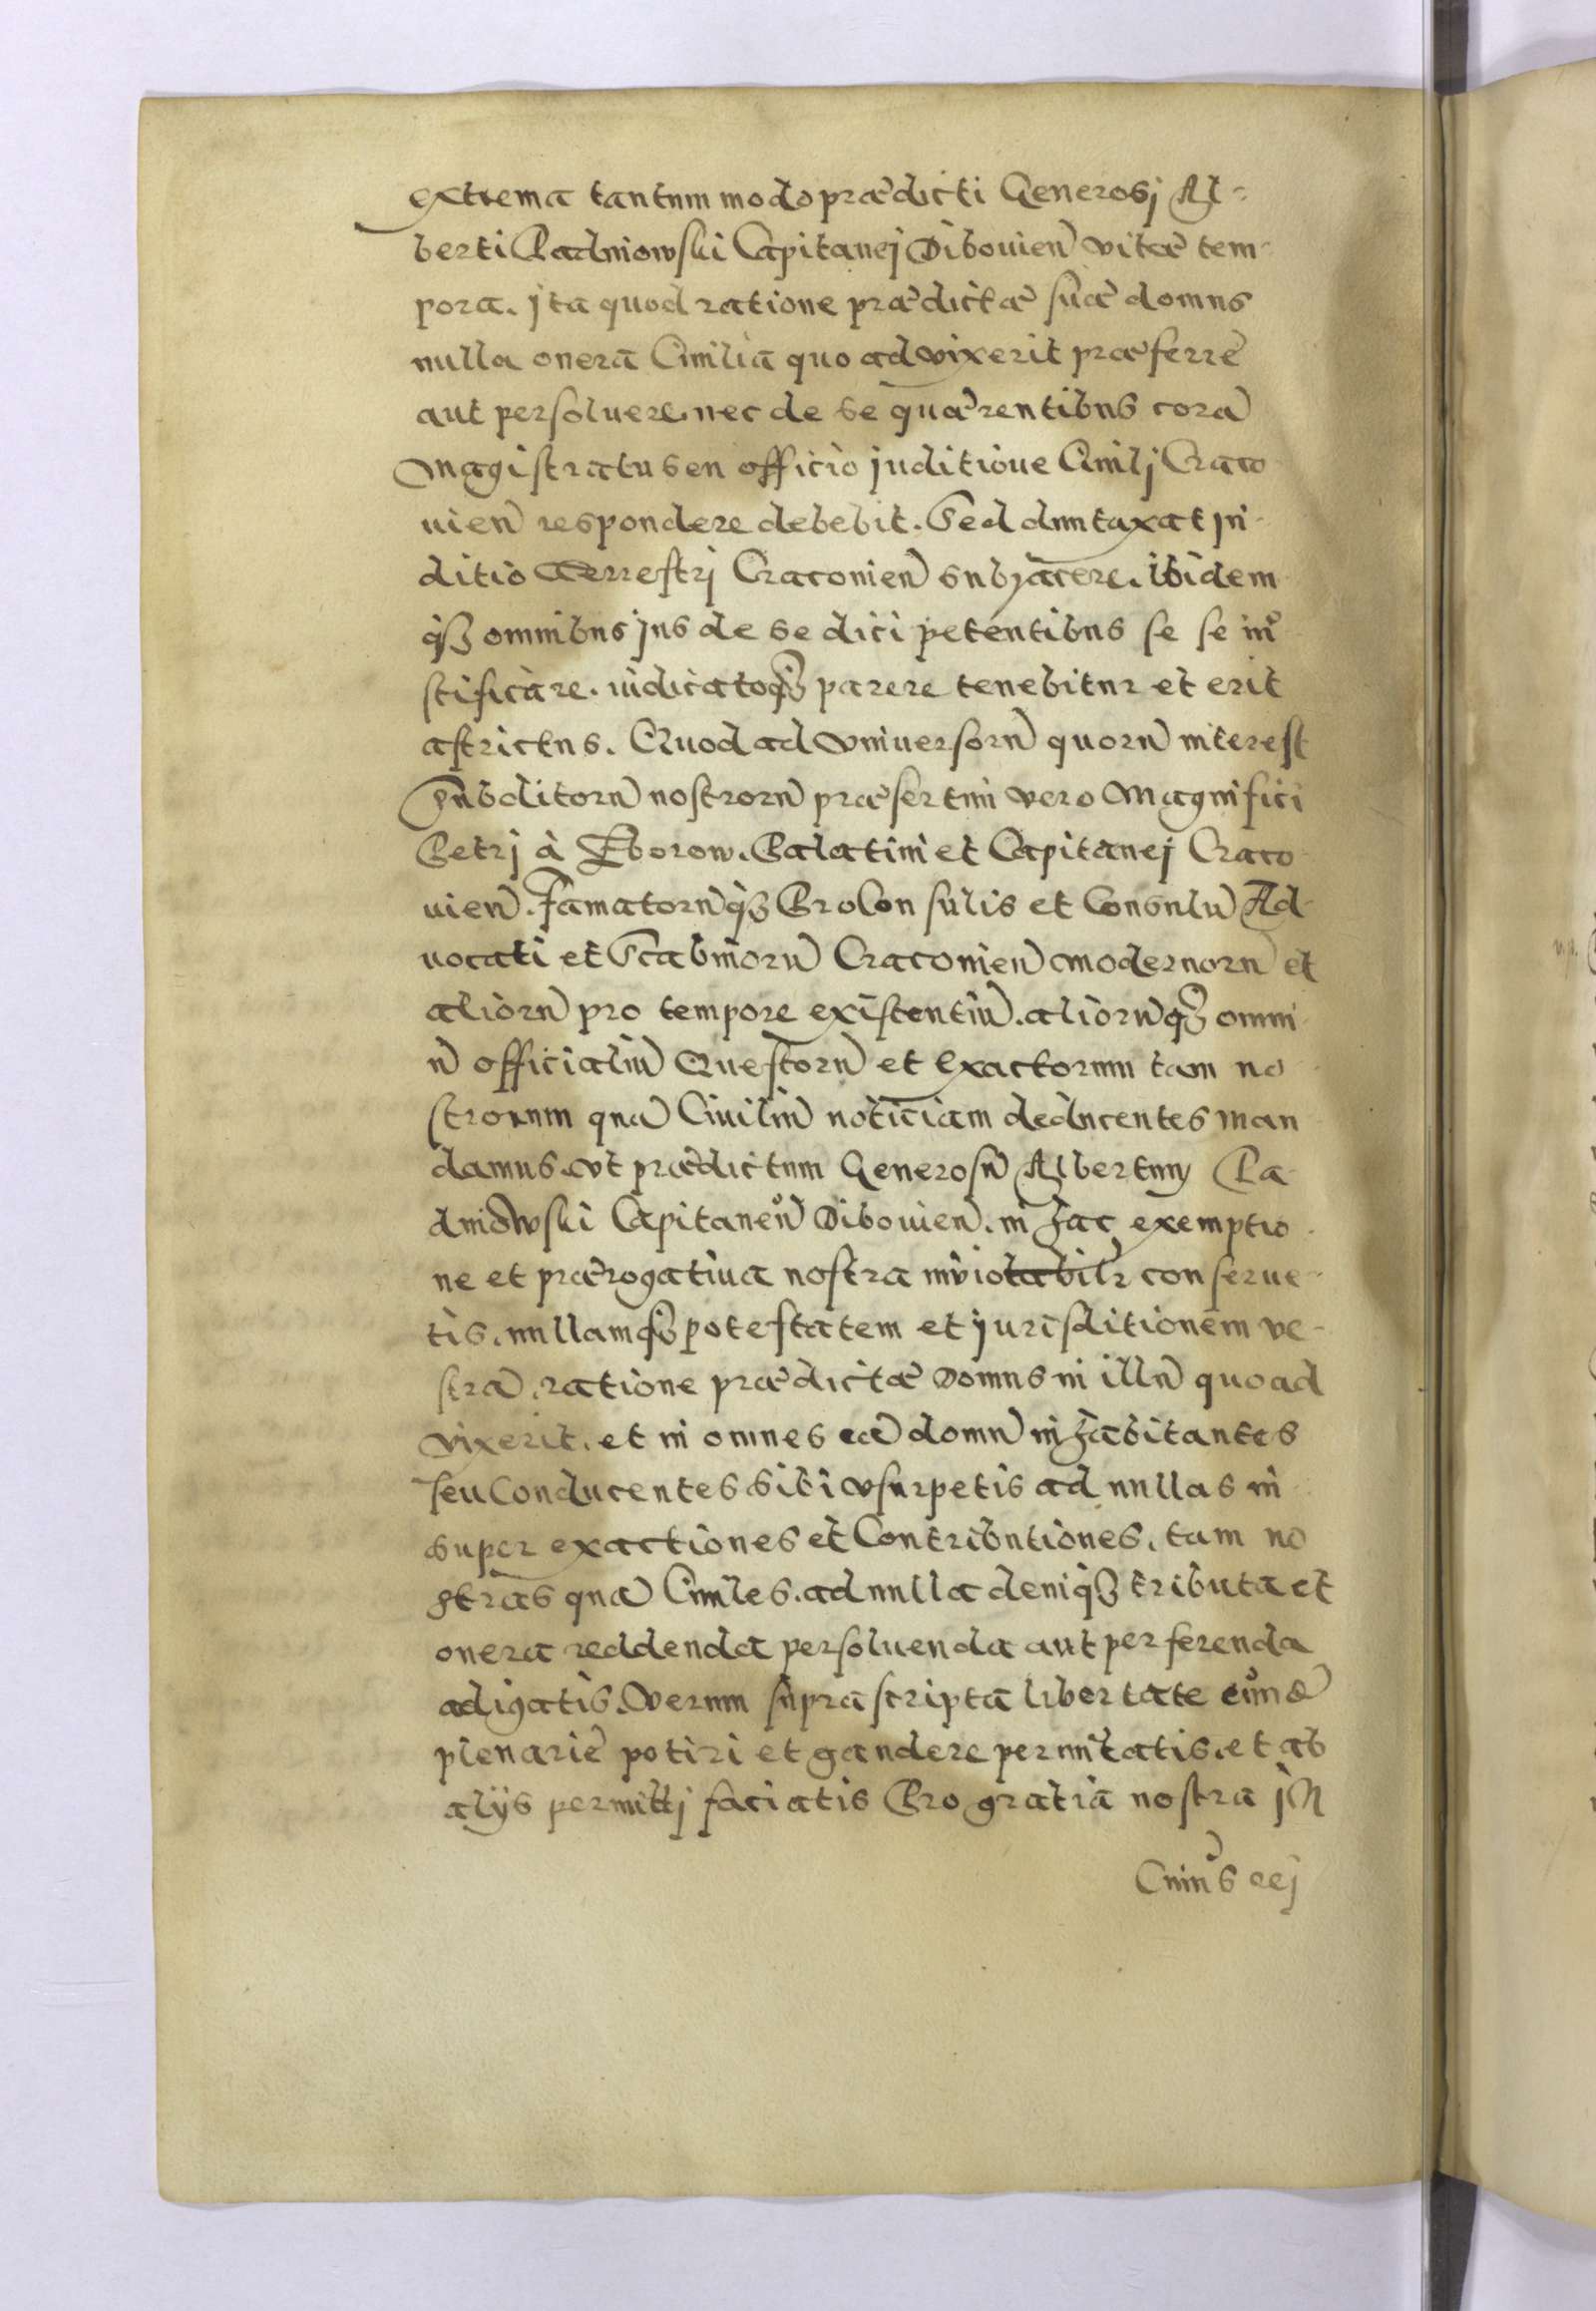 extrema tantum modo prædicti Generosi Al=
berti Padniowski Capitanei Dibouien̄ vitæ tem-
pora. ita quod ratione prædictæ suæ domus
nulla onera Ciuilia quo ad vixerit præferre
aut persoluere. nec de se quærentibus corā
Magistratu seu officio juditioue Ciuilj Craco
uien̄ respondere debebit. Sed duntaxat ju-
ditio Terrestrj Cracouien̄ subjacere. ibidem
qȝ omnibus jus de se dici petentibus se se iu
stificare. iudicatoqȝ parere tenebitur et erit
astrictus. Quod ad Vniuersorū quorū interest
Subditorū nostrorū præsertim vero Magnifici
Petrj à Zborow. Palatini et Capitanej Craco
uien̄. Famatorūqȝ ProConsulis et Consulū Ad-
uocati et Scabinorū Cracouien̄ modernorū et
aliorū pro tempore existentiū. aliorūqȝ omni
ū officialiū Questorū et exactorum tam no
strorum quā Ciuiliū noticiam deducentes man
damus. vt prædictum Generosū Albertum Pa-
dniowski Capitaneū Dibouien̄. in hac exemptio
ne et prærogatiua nostra inuiolabilr conserue-
tis. nullamqȝ potestatem et jurisditionem ve-
strā. ratione prædictæ Domus in illū quoad
vixerit. et in omnes eā domū inhabitantes
seu Conducentes sibi vsurpetis ad nullas in
super exactiones et Contributiones. tam no
stras quā Ciuiles. ad nulla deniqȝ tributa et
onera reddenda persoluenda aut perferenda
adigatis. Verum supra scripta libertate eundē
plenarie potiri et gaudere permittatis. et ab
alijs permittj faciatis Pro gratia nostra jn
Cuius rej